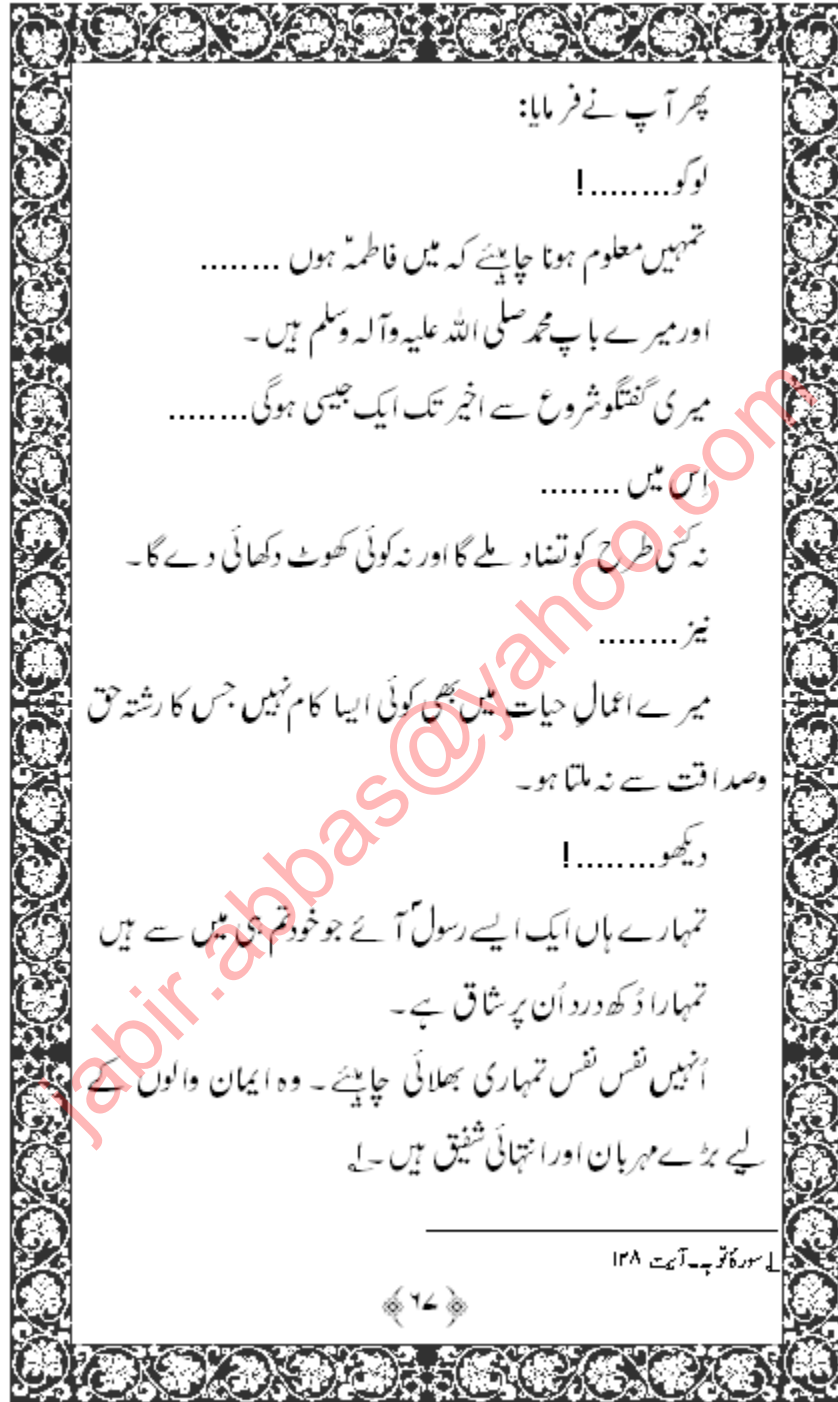 پھر آپ نے فرمایا:
لوگو.........!
تمہیں معلوم ہونا چاہیئے کہ میں فاطمہؑ ہوں ........
اور میرے باپ محمد صلی اللہ علیہ وآلہ وسلم ہیں۔
میری گفتگو شروع سے اخیر تک ایک جیسی ہوگی........
اِس میں ........
نہ کسی طرح کو تضاد ملے گا اور نہ کوئی کھوٹ دکھائی دے گا۔
نیز ........
میرے اعمالِ حیات میں بھی کوئی ایسا کام نہیں جس کا رشتہ حق
وصداقت سے نہ ملتا ہو۔
دیکھو.........!
تمہارے ہاں ایک ایسے رسولؐ آئے جو خود تم ہی میں سے ہیں
تمہارا دُکھ درد اُن پر شاق ہے۔
اُنہیں نفس نفس تمہاری بھلائی چاہیئے۔ وہ ایمان والوں کے
لیے بڑے مہربان اور انتہائی شفیق ہیں۔۱
۱ سورۂ توبہ۔ آیت ۱۲۸
﴿۶۷﴾
jabir.abbas@yahoo.com